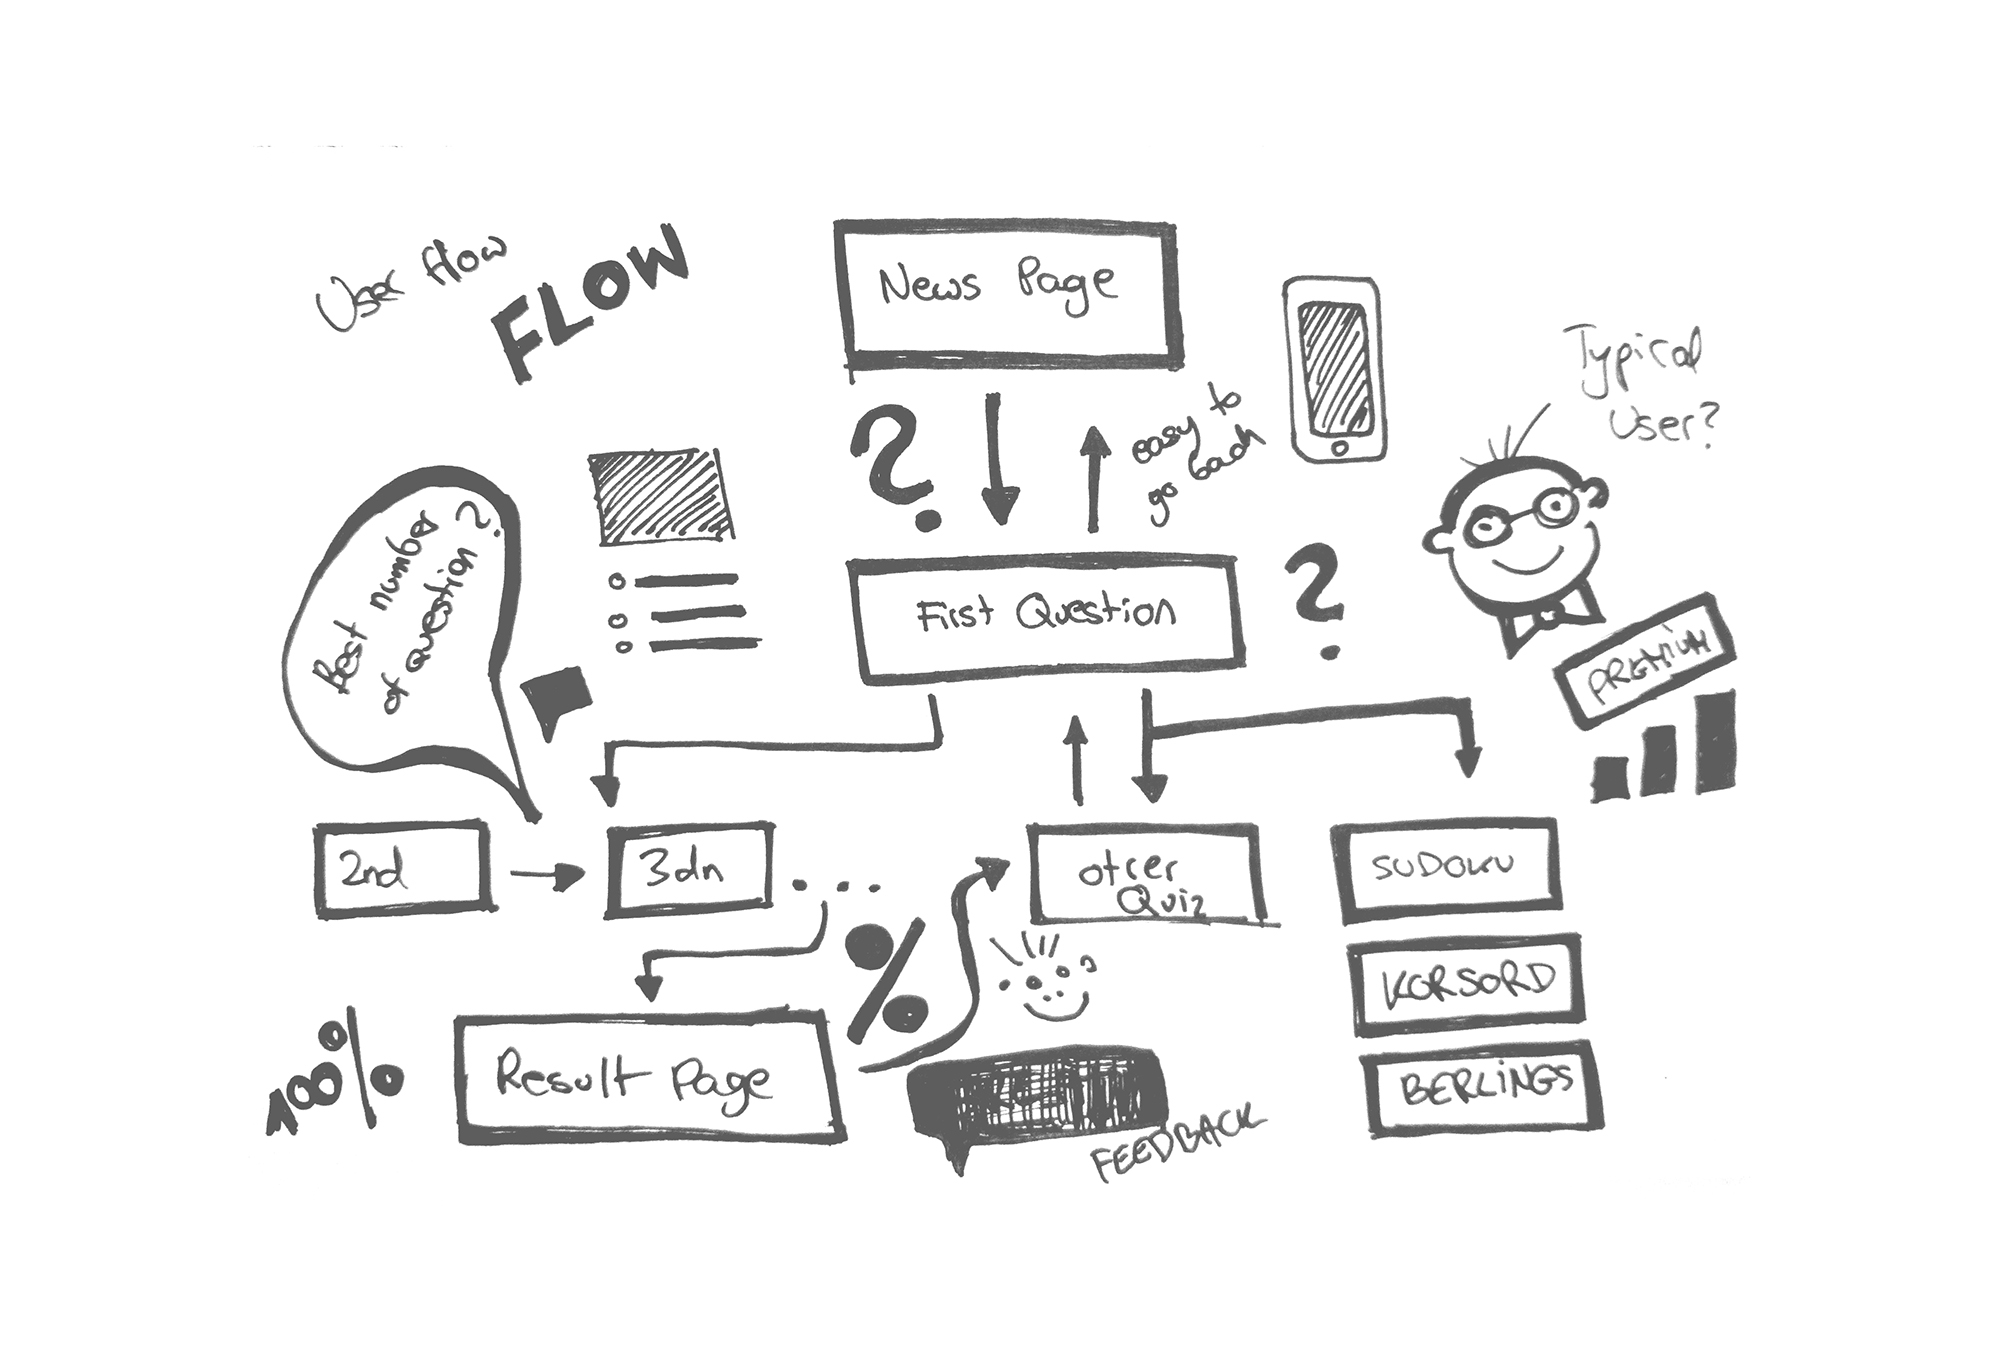 User flow
FLOW
News Page
easy to
go back
Typical
User?
?
Best number
of question?
First Question
?
PREMIUM
2nd
3dn
...
otcer
Quiz
SUDOKU
KORSORD
BERLINGS
%
100%
Result Page
FEEDBACK